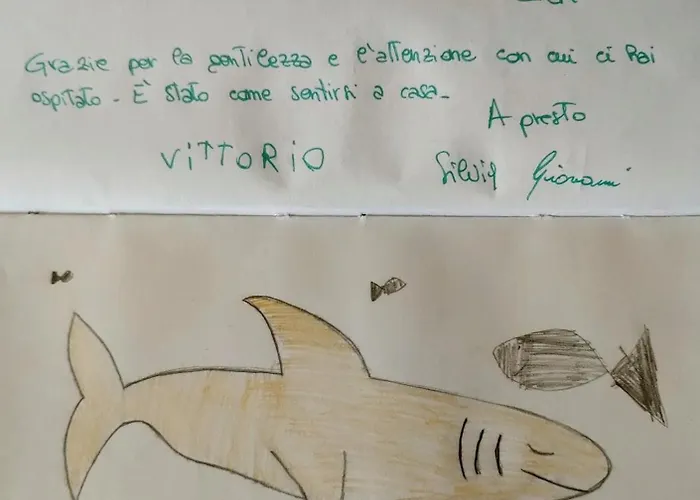 Grazie per la gentilezza e l'attenzione con cui ci hai
ospitato - È stato come sentirsi a casa -
A presto
VITTORIO
Silvia Giovanni